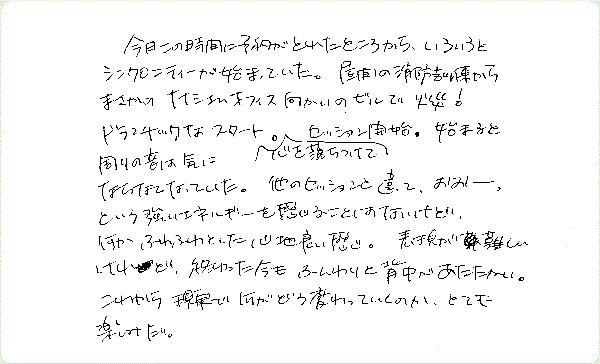 今日この時間に予約がとれたところから、いろいろと
シンクロニティーが始まっていた。屋向の消防車の陣から
まさかの オフィス向かいのビルで火災！
ドラマチックなスタート。セッション開始。始まると
心を落ちつけて
周りの音は気に
ならなくなっていた。他のセッションと違って、おおー、
という強いエネルギーを感じることは少ないけど、
何かふわふわとした心地良い感じ。表現が難しい
けれど、終わった今もふんわりと背中があたたかい。
これから現実で何がどう変わっていくのか、とても
楽しみだ。